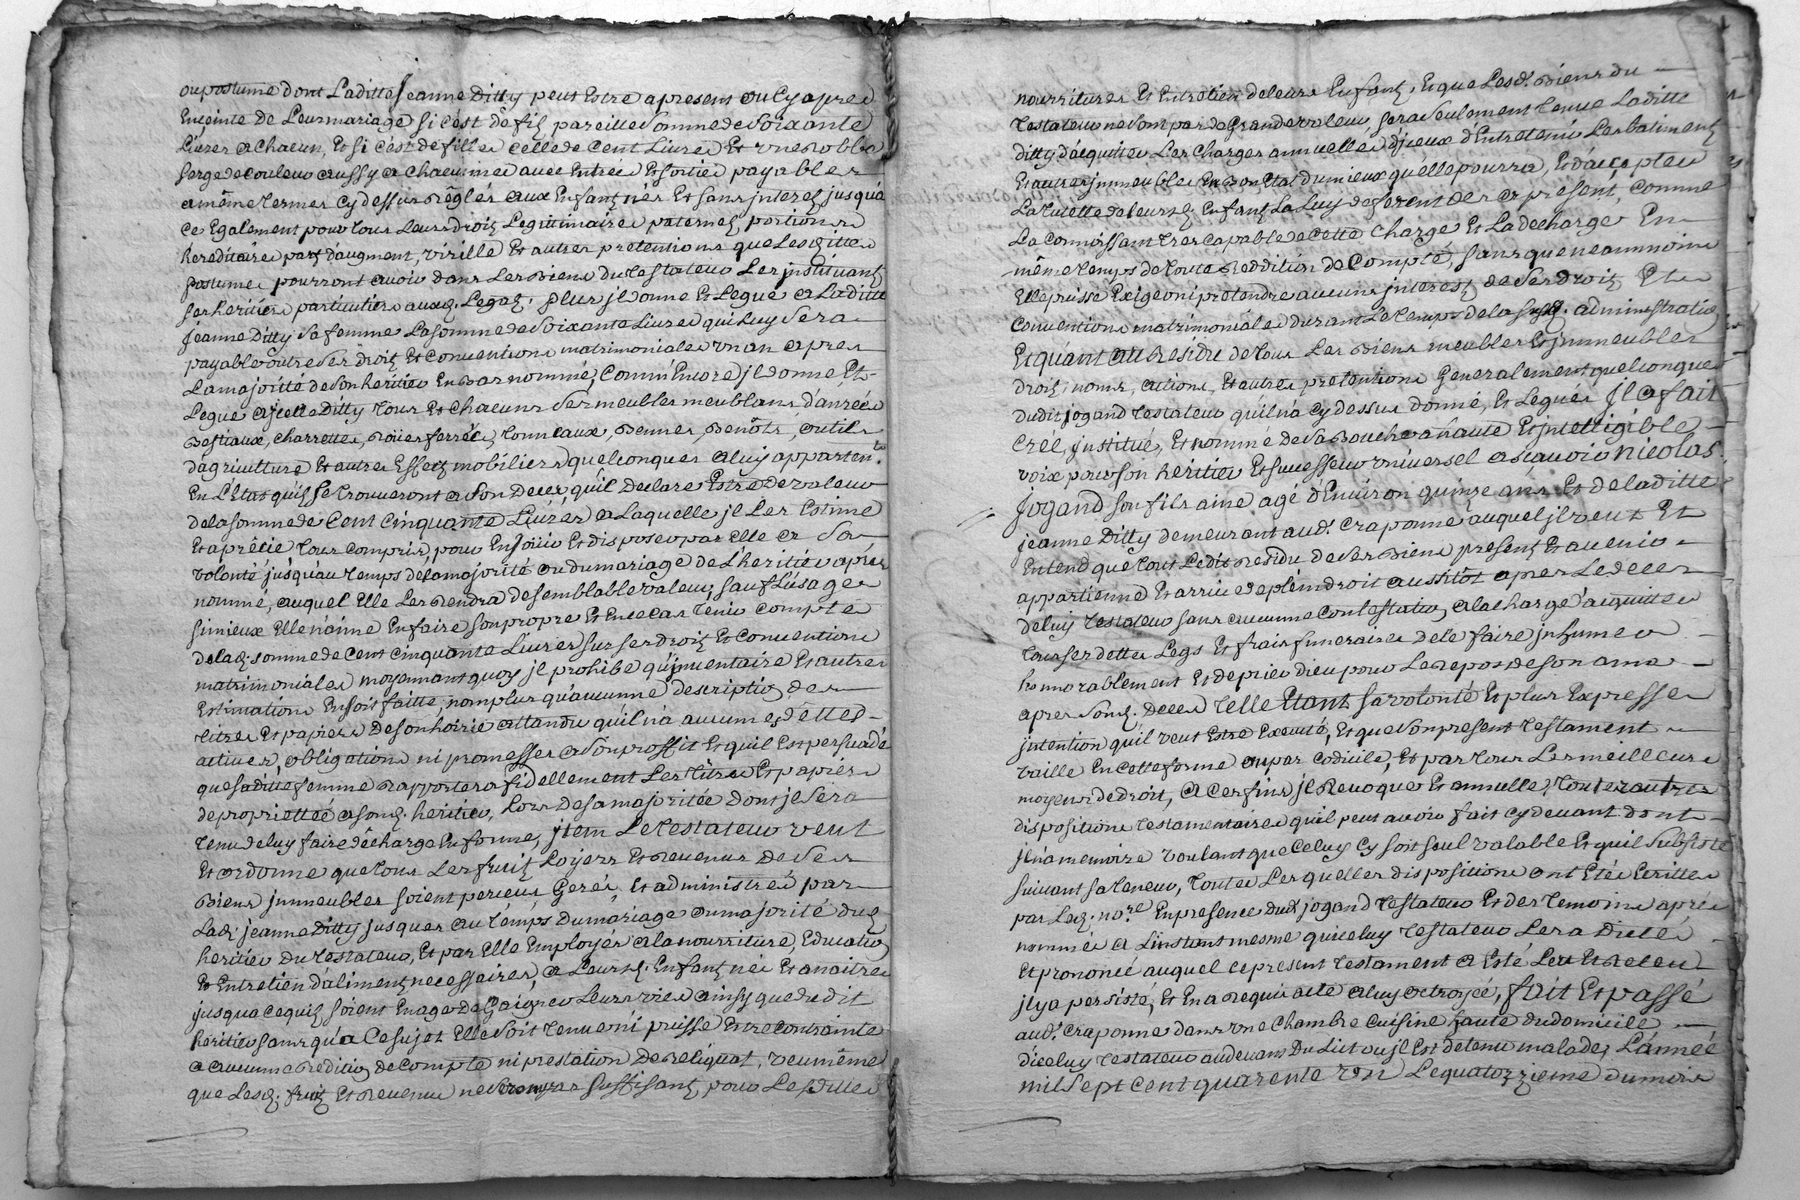 ou postume dont Laditte Jeanne Ditty peut Estre apresent ou Cy apres
Enceinte de Leur mariage si c'est de fils pareille Somme de Soixante
Livres a Chacun, Et si c'est de filles celle de Cent Livres Et une Robbe
serge de Couleur aussy a chacune avec Entrée Et sortie payables
a même termes cy dessus Réglés aux Enfants nés Et sans interest jusqu'a
ce Egalement pour tous Leurs droits Legitimaire paternes, portions
hereditaire part d'augment, virille Et autres pretentions que Lesdittes
postumes pourront avoir dans Les Biens du Testateur Les instituant
ses heritiers particuliers auxd. Legats. plus jl donne Et Legue a Laditte
jeanne Ditty Sa femme La somme de Soixante Livres qui Luy Sera
payable outre Ses Droits Et Conventions matrimoniales un an apres
La majorité de Son heritier En Bas nommé, Comm'Encore jl donne, Et
Legue a jcelle Ditty tous Et Chacuns Ses meubles meublans, danrées
Bestiaux, Charrettes, Roües ferrées, Tonneaux, Bennes, Benôts, outils
d'agriculture Et autres Effects mobiliers quelconques a luy apparten.t
En L'Etat qu'ils se trouveront a Son Decez, qu'il Declare Estre de valeur
de la somme de Cent Cinquante Livres a Laquelle jl Les Estime
Et aprétie, tous Compris, pour En joüir Et disposer par Elle a Sa
volonté jusqu'au temps de la majorité ou du mariage de L'heritier apres
nommé, auquel Elle Les Rendra de semblable valeur, sauf L'usage
si mieux Elle n'aime En faire son propre Et En ce cas tenir Compte
de lad. somme de Cent cinquante Livres sur ses droits Et Conventions
matrimoniales moyennant quoy jl prohibe qu'jnventaire Et autres
Estimations En soit faitte, nomplus qu'aucunne description des
titres Et papiers De son hoirie attandu qu'il n'a aucunnes dettes
actives, obligations ni promesses a Son proffit Et qu'il Est persuadé
que saditte femme Rapportera fidellement Les titres Et papiers
de proprietteé a sond. heritier, Lors de sa majoritée dont jl Sera
tenu de luy faire décharge En forme, jtem Le testateur veut
Et ordonne que tous Les fruits Loyers Et Revenus de Ses
Biens jmmeubles soient perceus Gerés, Et administrés par
Lad. jeanne Ditty jusques au temps du mariage ou majorité dud.
heritier du Testateur, Et par Elle Employés a la nourriture, Education
Et Entretien d'aliments necessaires, a Leursd. Enfants nés Et a naitre
jusqu'a ce qu'ils soient En age de Gaigner Leurs vies ainsy que dudit
heritier sans qu'a Ce sujet Elle Soit tenue ni puisse Estre Contrainte
a aucunne Reddition de Compte ni prestation de Reliquat, veu même
que Lesd. fruits Et Revenus ne Seront pas suffisants, pour Lesdittes
nourritures Et Entretien de leurs Enfants, Et que Lesd. Biens du
testateur ne Sont pas de Grande valeur sera seulement tenue Laditte
ditty d'acquitter Les Charges annuelles d'jceux d'Entretenir Les batiments
Et autres jmmeubles En Bon Etat du mieux qu'elle pourra, Et d'accepter
La tutelle de leursd. Enfants La Luy deferent des a présent, comme
La Connoissant tres Capable de Cette Charge Et La decharge En
même temps de toute Reddition de Compte, sans que neammoins
Elle puisse Exiger ni pretendre aucuns jnterests de Ses droits Et
Conventions matrimoniales durant Le temps de la susd. administration
Et quant au Residu de tous Les Biens meubles Et jmmeubles
droits, noms, actions, Et autres pretentions Generalement quelconques
dudit jogand testateur qu'il n'a cy dessus donné, Et Legués Jl a fait
Créé, jnstitué, Et nommé de Sa Bouche a haute Et jntelligible
voix pour son heritier Et successeur universel a scavoir nicolas
jogand son fils ainé agé d'Environ quinze ans Et de laditte
jeanne Ditty demeurant aud. Craponne auquel jl veut Et
Entend que tout Ledit Residu de Ses Biens present Et avenir
appartienne Et arrive de plein droit aussitôt apres Le decez
de luy testateur sans aucunne Contestation, a la charge d'aquitter
tous ses dettes Legs Et frais funeraires de le faire jnhumer
honnorablement Et de prier dieu pour Le Repos de son ame
apres Sond. decez telle Etant sa volonté Et plus Expresse
jntention qu'il veut Estre Executé, Et que Son present testament
vaille En cette forme ou par Codicile, Et par tous Les meilleurs
moyens de droit, a Ces fins jl Revoque Et annulle, toutes autres
dispositions testamentaires qu'il peut avoir fait Cy devant dont
jl n'a memoire voulant que Celuy Cy soit seul valable Et qu'il Subsiste
suivant sa teneur, toutes Les quelles dispositions ont Eté Ecrittes
par Led. no.re En presence dud. jogand testateur Et des temoins après
nommés a L'instant mesme qu'iceluy testateur Les a Dictés
Et prononcé auquel ce present testament a Esté Leu Et Releu
jl y a persisté, Et En a Requis acte a luy octroyé, fait Et passé
aud. Craponne dans une Chambre Cuisine haute du domicille
d'iceluy testateur au devant du Lict ou jl Est detenu malade, L'année
mil sept cent quarente un Le quatorzieme du mois